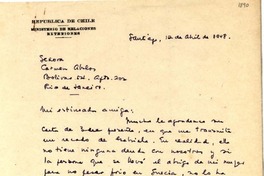 REPUBLICA DE CHILE
MINISTERIO DE RELACIONES
EXTERIORES
Santiago, 12 de Abril de 1948.
Señora
Carmen
Bolívar
Rio de Janeiro.
Mi estimada amiga:
Mucho le agradezco su
carta de Enero pasado, en que me transmite
un recado de Gabriela. En realidad, ella
no tiene ninguna deuda con nosotros y si
la persona que se llevó el abrigo de mi mujer
para no pasar frío en Suecia, no lo ha